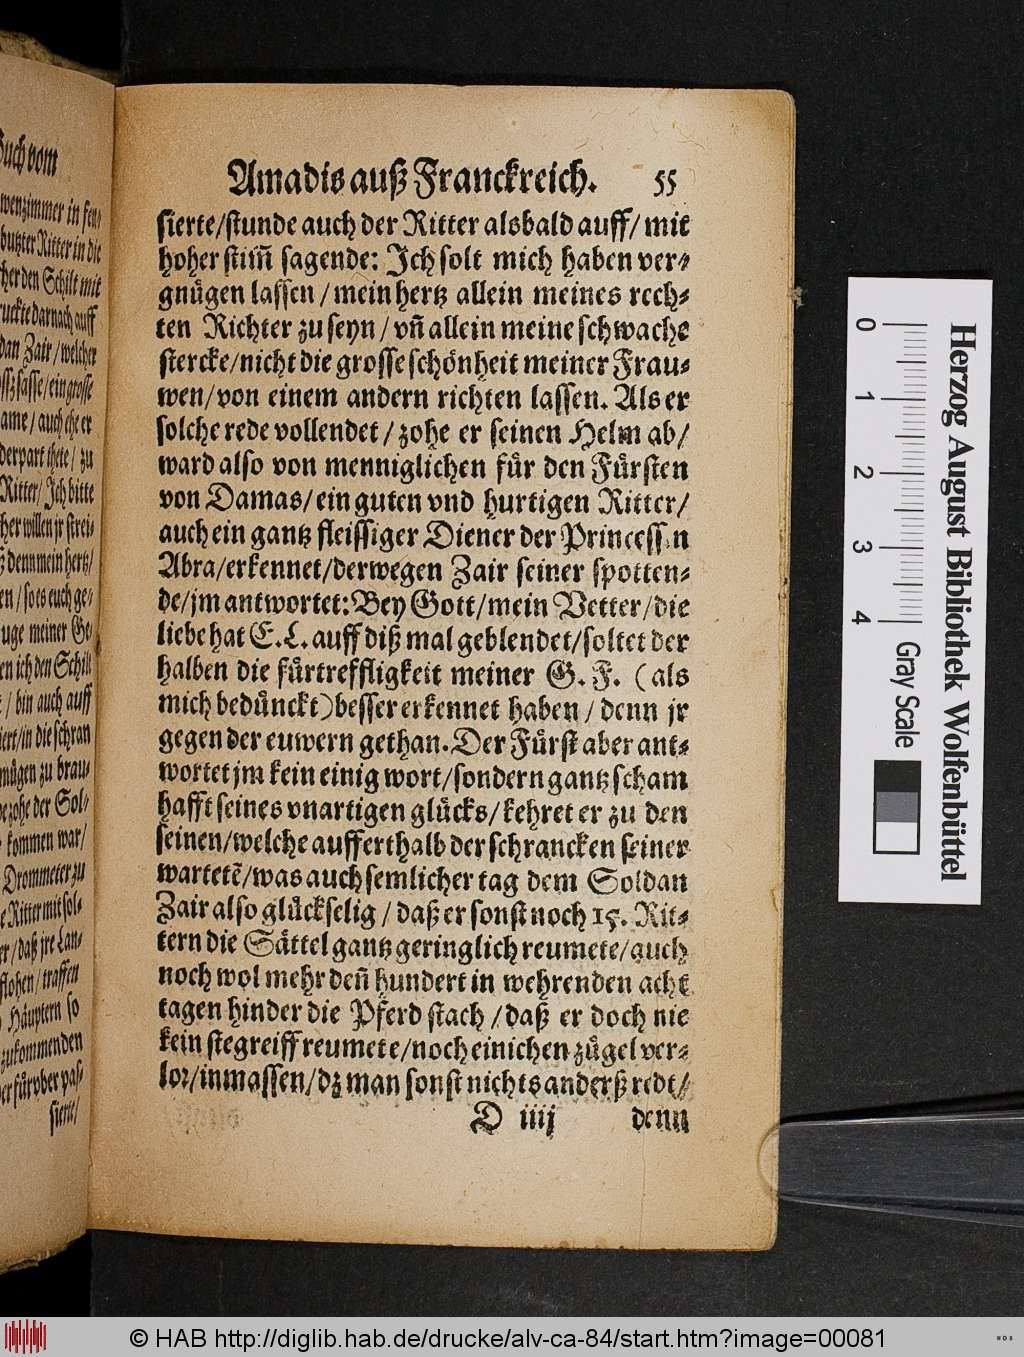 Buch vom
wenzimmer in fen⸗
butzter Ritter in die
her den Schilt mit
ruckte darnach auff
dan Zair / welcher
sasse / ein grosse
ame / auch ehe er
derpart thete / zu
Ritter / Ich bitte
her willen jr strei⸗
denn mein hertz /
en / so es euch ge⸗
uge meiner Ge⸗
en ich den Schilt
/ bin auch auff
iert / in die schran
nügen zu brau⸗
zohe der Sol⸗
kommen war /
Drommeter zu
e Ritter mit sol⸗
er / daß jre Lan⸗
flohen / traffen
Häuptern so
zukommenden
er fürvber pas⸗
sierte /
Amadis auß Franckreich. 55
sierte / stunde auch der Ritter alsbald auff / mit
hoher stim̄ sagende: Ich solt mich haben ver⸗
gnügen lassen / mein hertz allein meines rech⸗
ten Richter zu seyn / vn̄ allein meine schwache
stercke / nicht die grosse schönheit meiner Frau⸗
wen / von einem andern richten lassen. Als er
solche rede vollendet / zohe er seinen Helm ab /
ward also von menniglichen für den Fürsten
von Damas / ein guten vnd hurtigen Ritter /
auch ein gantz fleissiger Diener der Princessin
Abra / erkennet / derwegen Zair seiner spotten⸗
de / jm antwortet: Bey Gott / mein Vetter / die
liebe hat E. L. auff diß mal geblendet / soltet der
halben die fürtreffligkeit meiner G. F. (als
mich bedünckt) besser erkennet haben / denn jr
gegen der euwern gethan. Der Fürst aber ant⸗
wortet jm kein einig wort / sondern gantz scham
hafft seines vnartigen glücks / kehret er zu den
seinen / welche aufferthalb der schrancken seiner
wartetē / was auch semlicher tag dem Soldan
Zair also glückselig / daß er sonst noch 15. Rit⸗
tern die Sättel gantz geringlich reumete / auch
noch wol mehr deñ hundert in wehrenden acht
tagen hinder die Pferd stach / daß er doch nie
kein stegreiff reumete / noch einichen zügel ver⸗
lor / inmassen / dz man sonst nichts anderß redt /
D iiij denn
Herzog August Bibliothek Wolfenbüttel
0 1 2 3 4 Gray Scale
© HAB http://diglib.hab.de/drucke/alv-ca-84/start.htm?image=00081
WDB